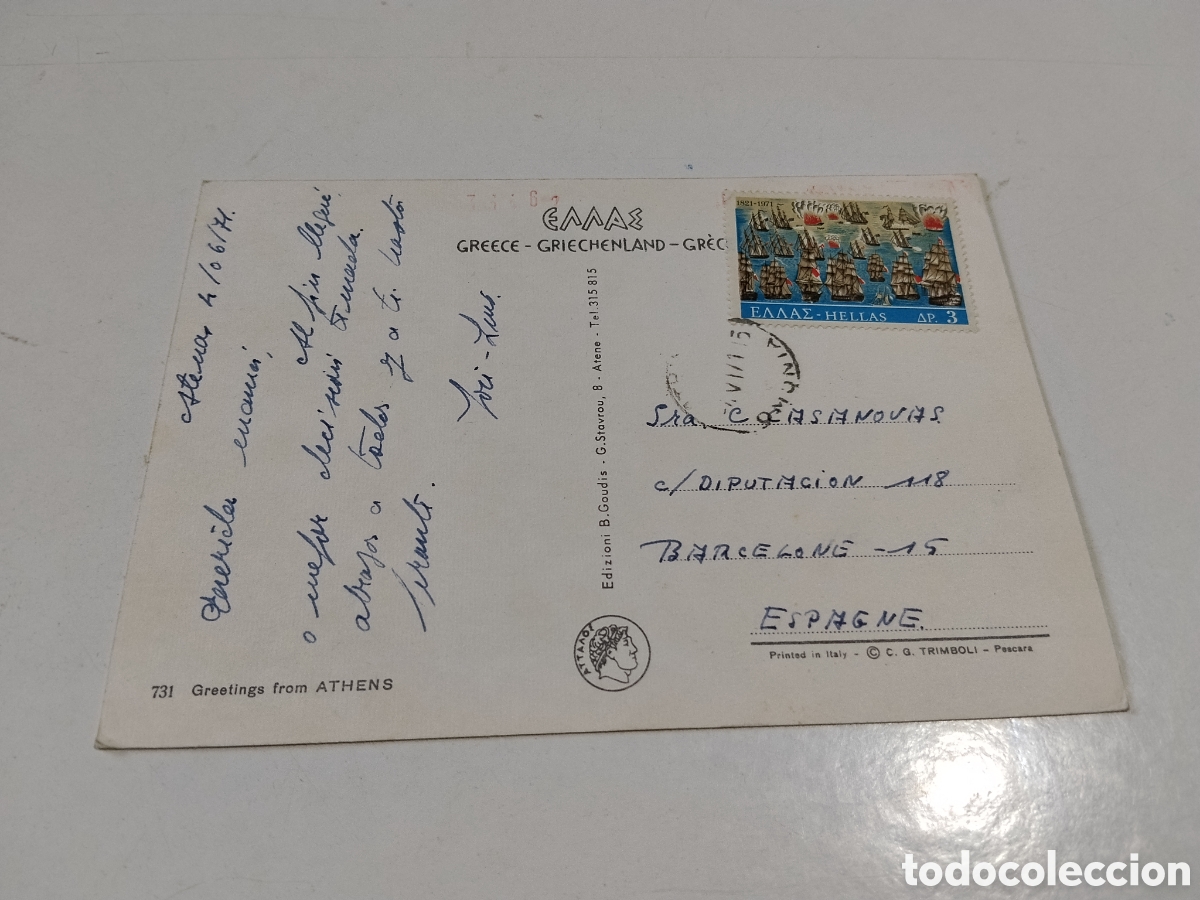 ΕΛΛΑΣ
GREECE - GRIECHENLAND - GRÈC
1821-1971
ΕΛΛΑΣ - HELLAS ΔΡ. 3
Atenas 4/06/71.
mamá,
Al fin llegué
o mejor decir
abrazos a todos y a ti hasta
Edizioni B. Goudis - G. Stavrou, 8 - Atene - Tel. 315 815
Sra C CASANOVAS
c/ DIPUTACION 118
BARCELONE - 15
ESPAGNE.
Printed in Italy - © C. G. TRIMBOLI - Pescara
ΑΤΤΑΛΟΣ
731 Greetings from ATHENS
todocoleccion